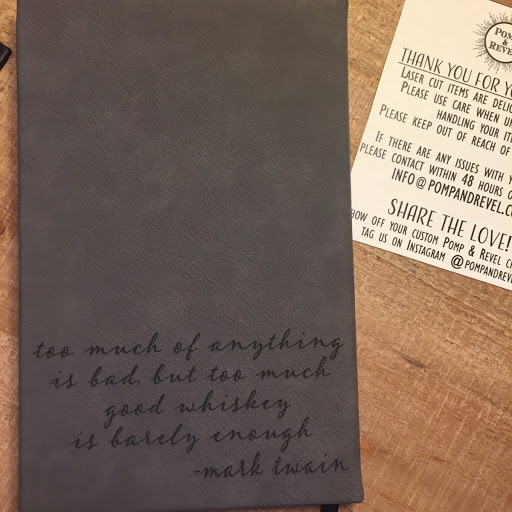 too much of anything
is bad, but too much
good whiskey
is barely enough
-mark twain
POMP
&
REVEL
THANK YOU FOR
LASER CUT ITEMS ARE
PLEASE USE CARE WHEN
HANDLING YOUR
PLEASE KEEP OUT OF REACH OF
IF THERE ARE ANY ISSUES WITH
PLEASE CONTACT WITHIN 48 HOURS
INFO@POMPANDREVEL.C
SHARE THE LOVE!
OFF YOUR CUSTOM POMP & REVEL
TAG US ON INSTAGRAM @POMPANDREVEL